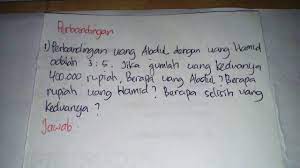 Perbandingan
1) Perbandingan uang Abdul dengan uang Hamid
adalah 3:5. Jika jumlah uang keduanya
400.000 rupiah, Berapa uang Abdul? Berapa
rupiah uang Hamid? Berapa selisih uang
keduanya?
Jawab: